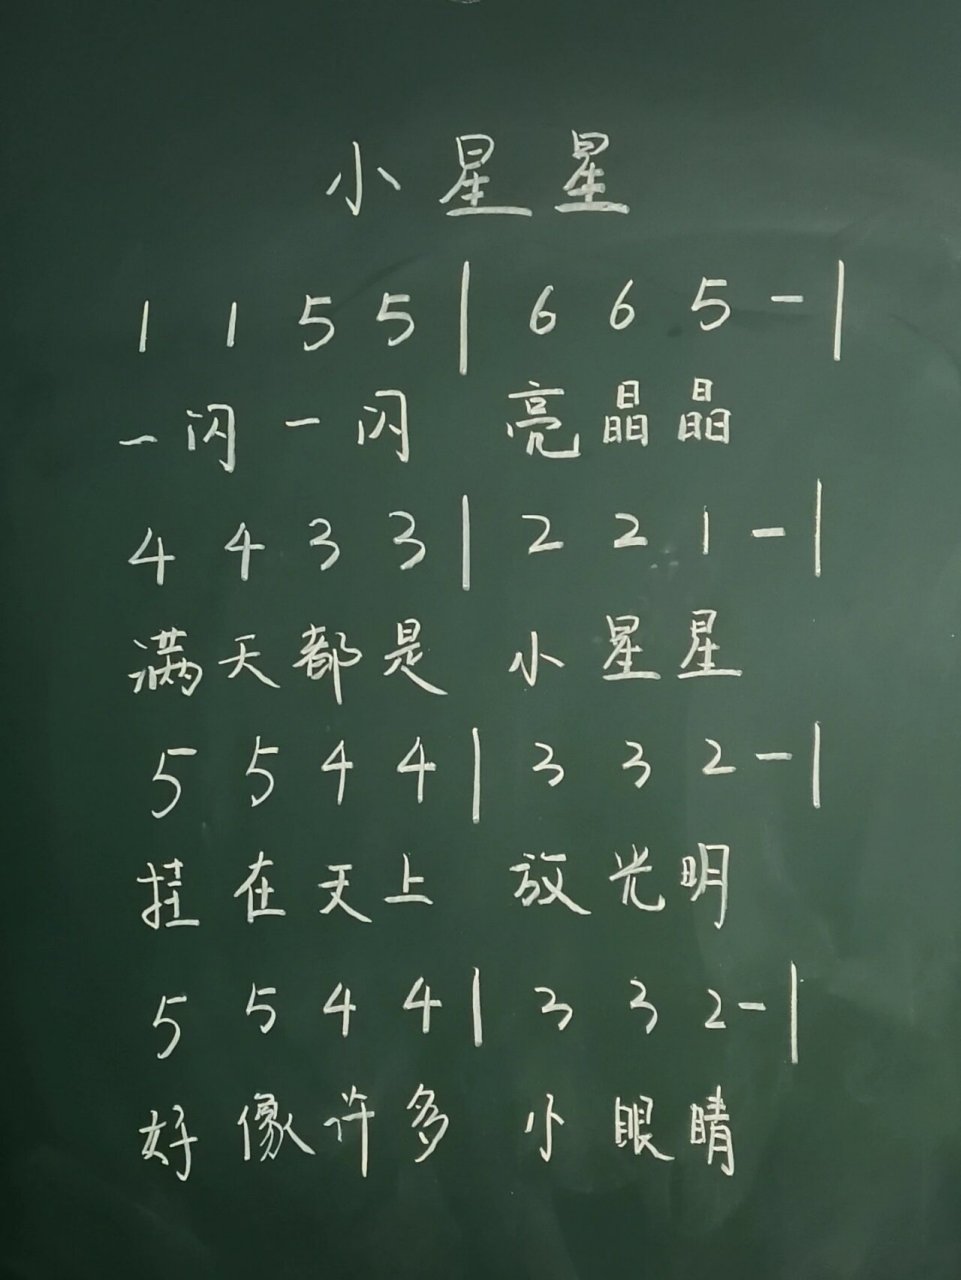 小星星
1 1 5 5 | 6 6 5 - |
一闪一闪 亮晶晶
4 4 3 3 | 2 2 1 - |
满天都是 小星星
5 5 4 4 | 3 3 2 - |
挂在天上 放光明
5 5 4 4 | 3 3 2 - |
好像许多 小眼睛